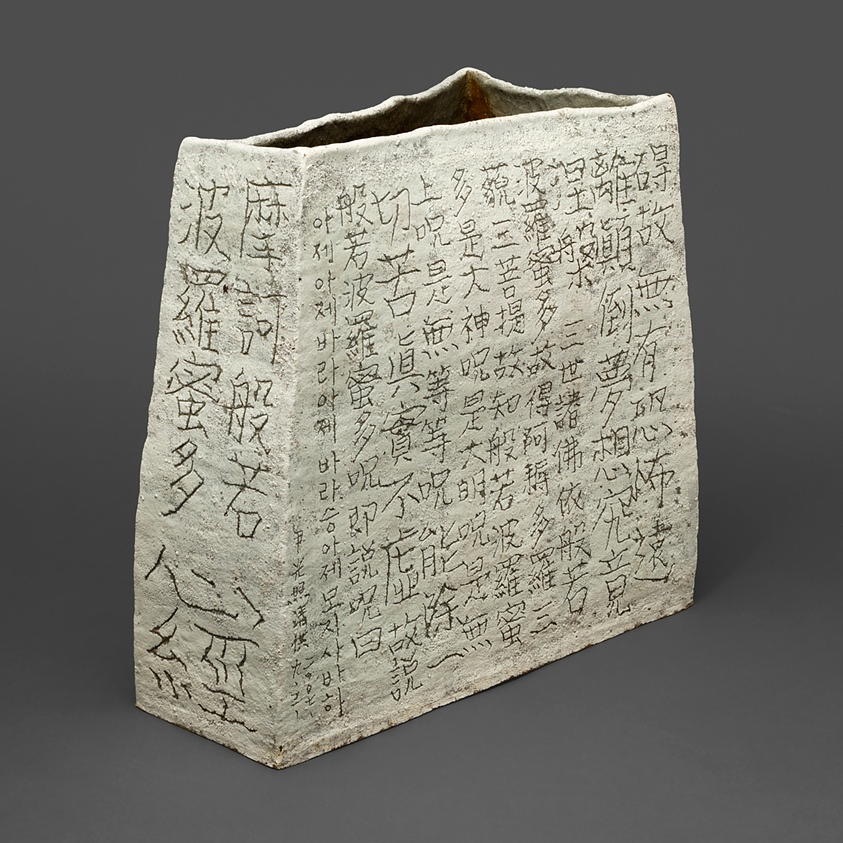 碍故無有恐怖遠
離顚倒夢想究竟
涅槃 三世諸佛依般若
波羅蜜多故得阿耨多羅三
藐三菩提故知般若波羅蜜
多是大神呪是大明呪是無
上呪是無等等呪能除一
切苦眞實不虛故說
般若波羅蜜多呪卽說呪曰
아제아제바라아제바라승아제모지사바하
摩訶般若
波羅蜜多 心經